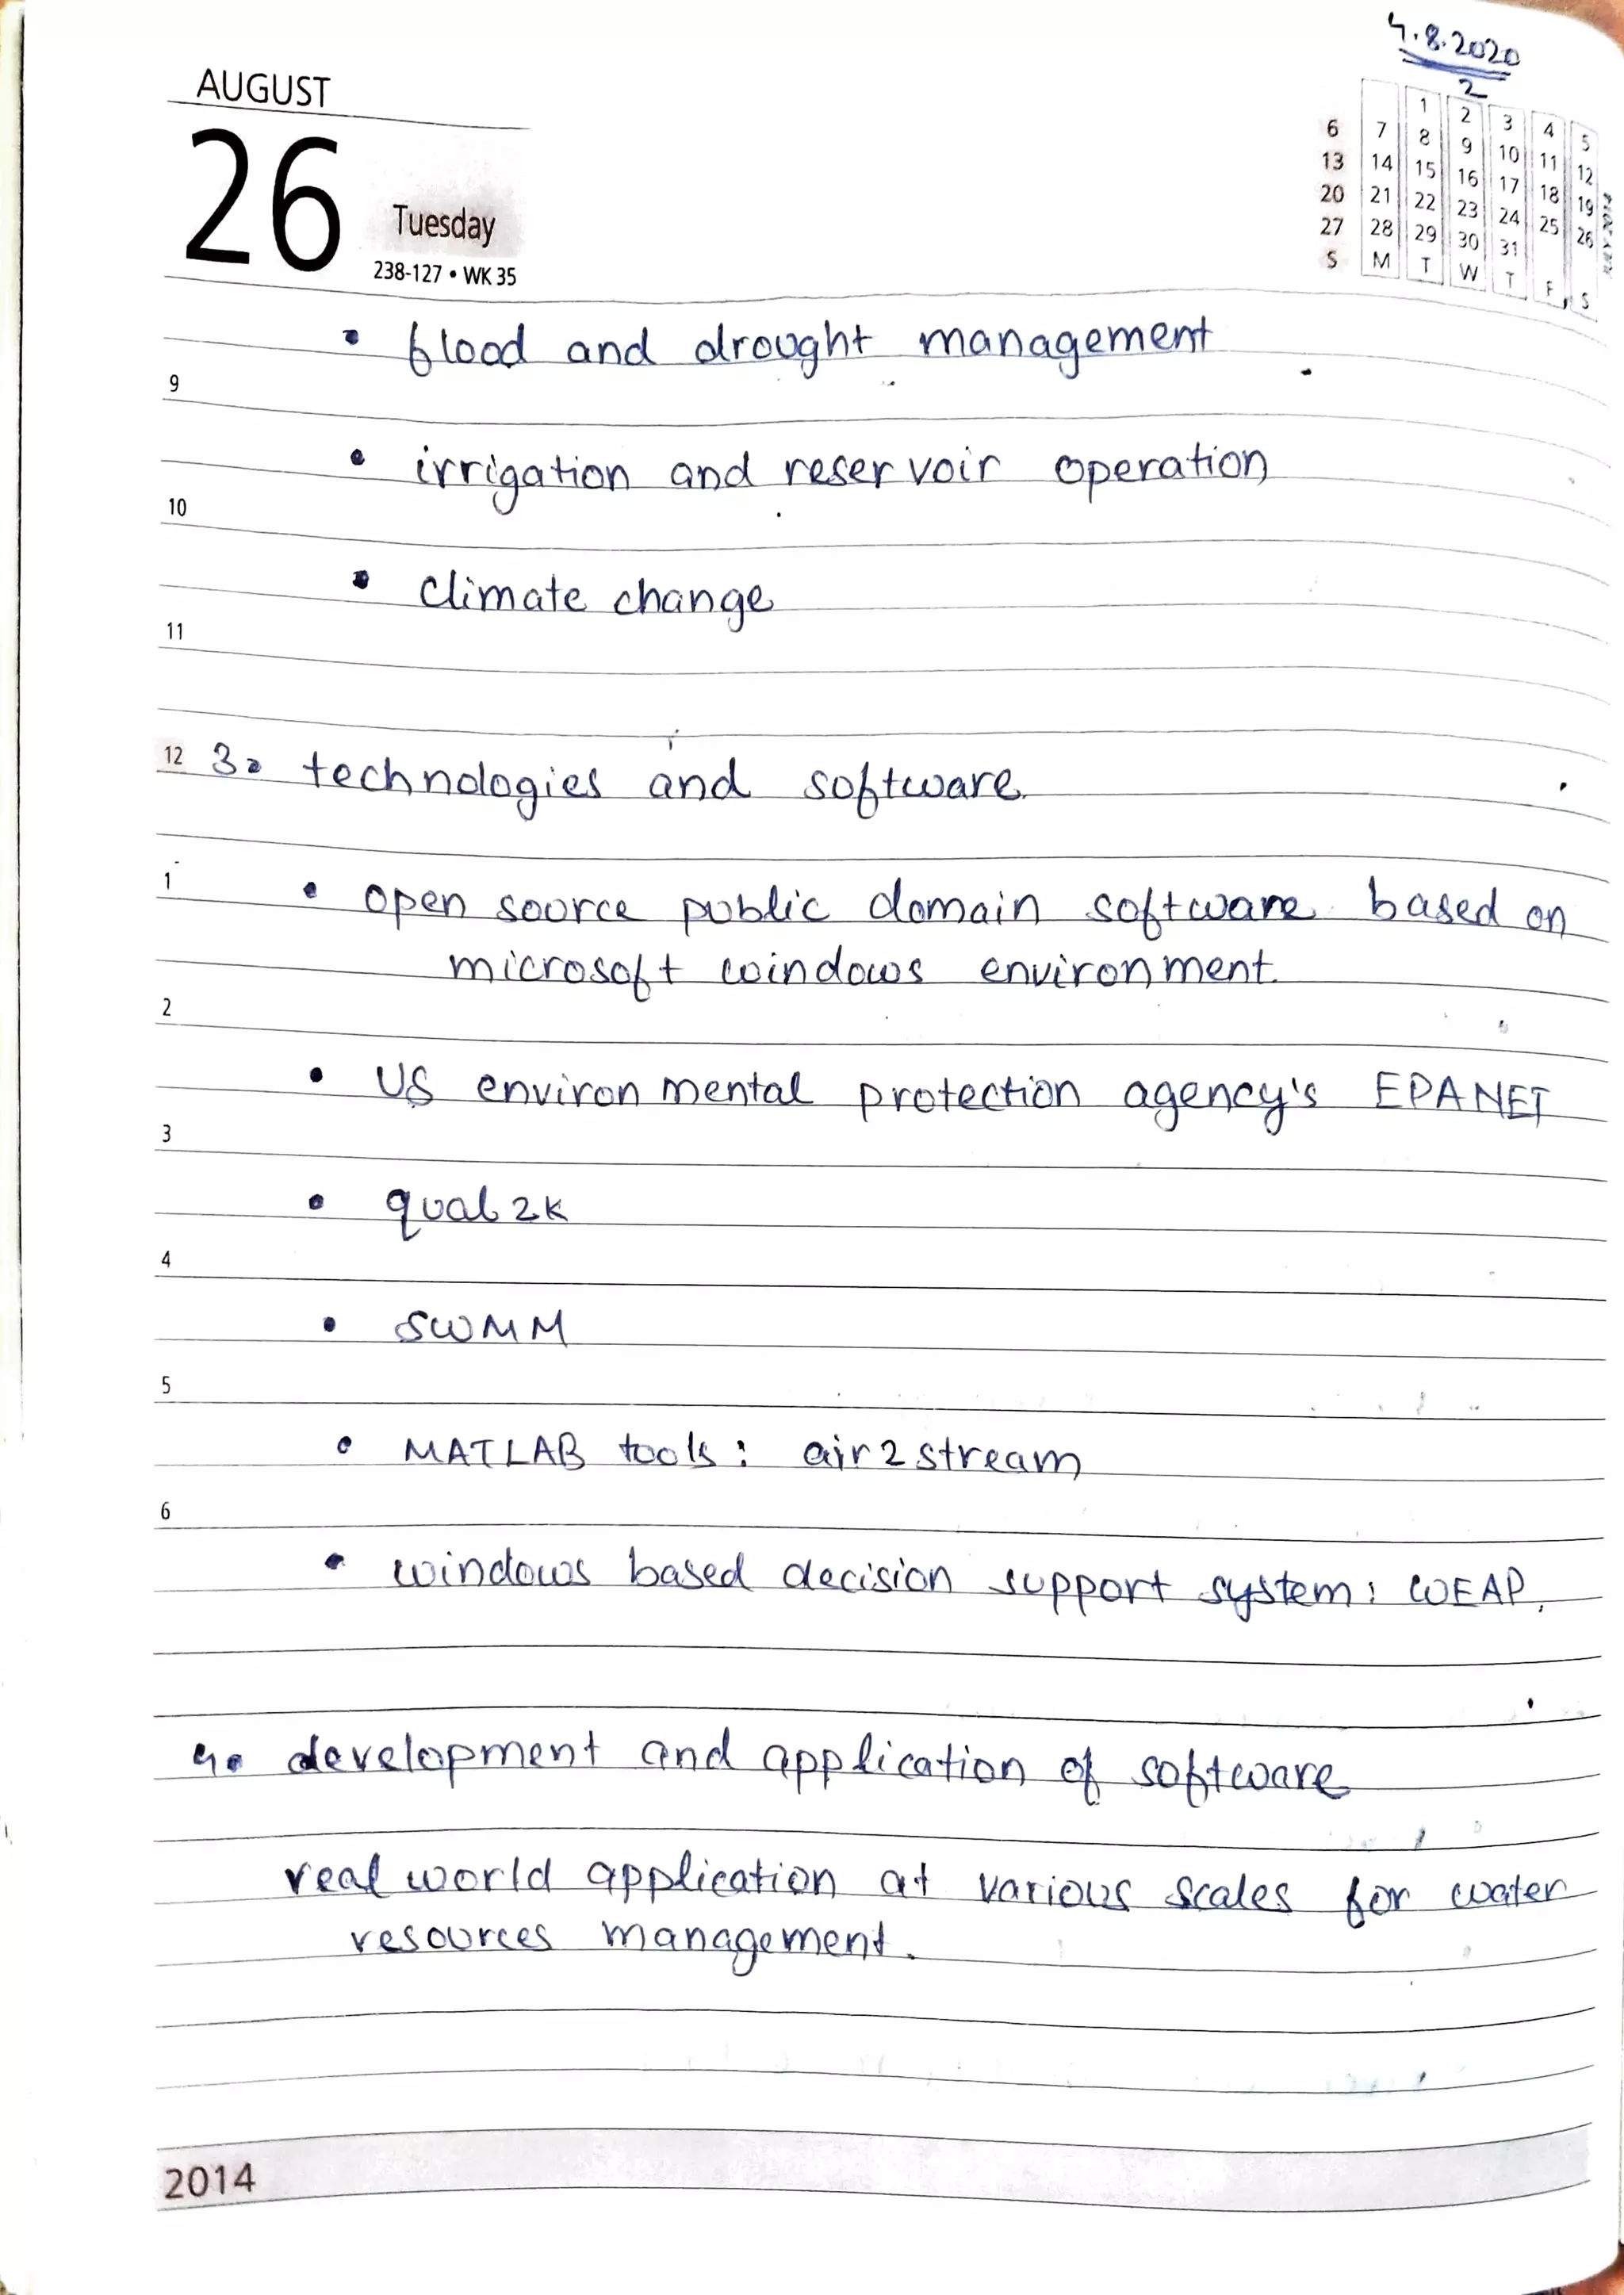 4.8.2020
2
AUGUST
26
Tuesday
238-127 • WK 35
1 2 3 4 5
6 7 8 9 10 11 12
13 14 15 16 17 18 19
20 21 22 23 24 25 26
27 28 29 30 31
S M T W T F S
• flood and drought management
9
• irrigation and reservoir operation
10
• climate change
11
12 3. technologies and software.
1
• open source public domain software based on
microsoft windows environment.
2
• US environmental protection agency's EPANET
3
• qual2k
4
• SWMM
5
• MATLAB tools: air2stream
6
• windows based decision support system: WEAP.
4. development and application of software
real world application at various scales for water
resources management.
2014